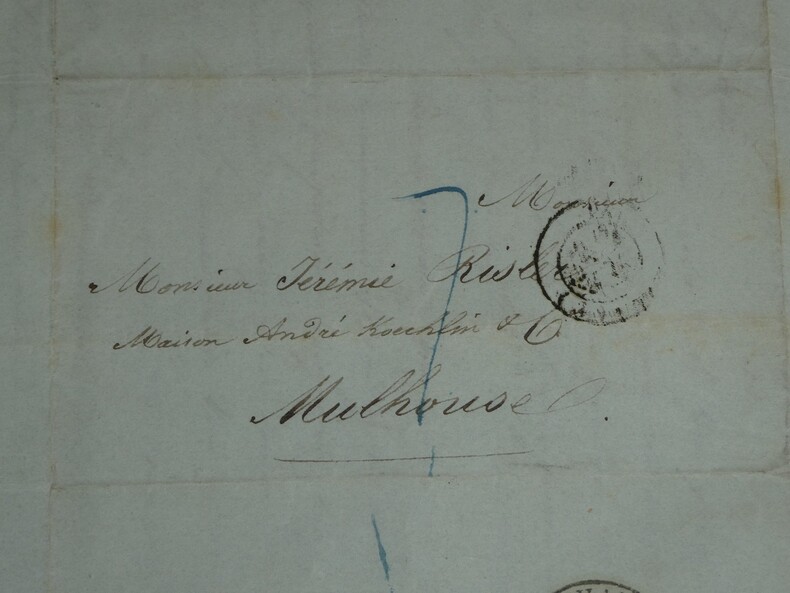 7
Monsieur
Monsieur Jérémie Risler
Maison André Koechlin & C
Mulhouse